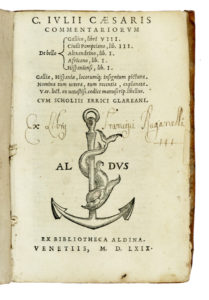 C. IVLII CÆSARIS
COMMENTARIORVM
Gallico, libri VIII.
Ciuili Pompeiano, lib. III.
De bello Alexandrino, lib. I.
Africano, lib. I.
Hispaniensi, lib. I.
Galliæ, Hispaniæ, locorumq; insignium pictura.
Nomina tum uetera, tum recentia, explanata.
Var. lect. ex uetustiss. codice manuscrip. libellus.
CVM SCHOLIIS ERRICI GLAREANI.
Ex
AL DVS
EX BIBLIOTHECA ALDINA.
VENETIIS, M. D. LXIX.